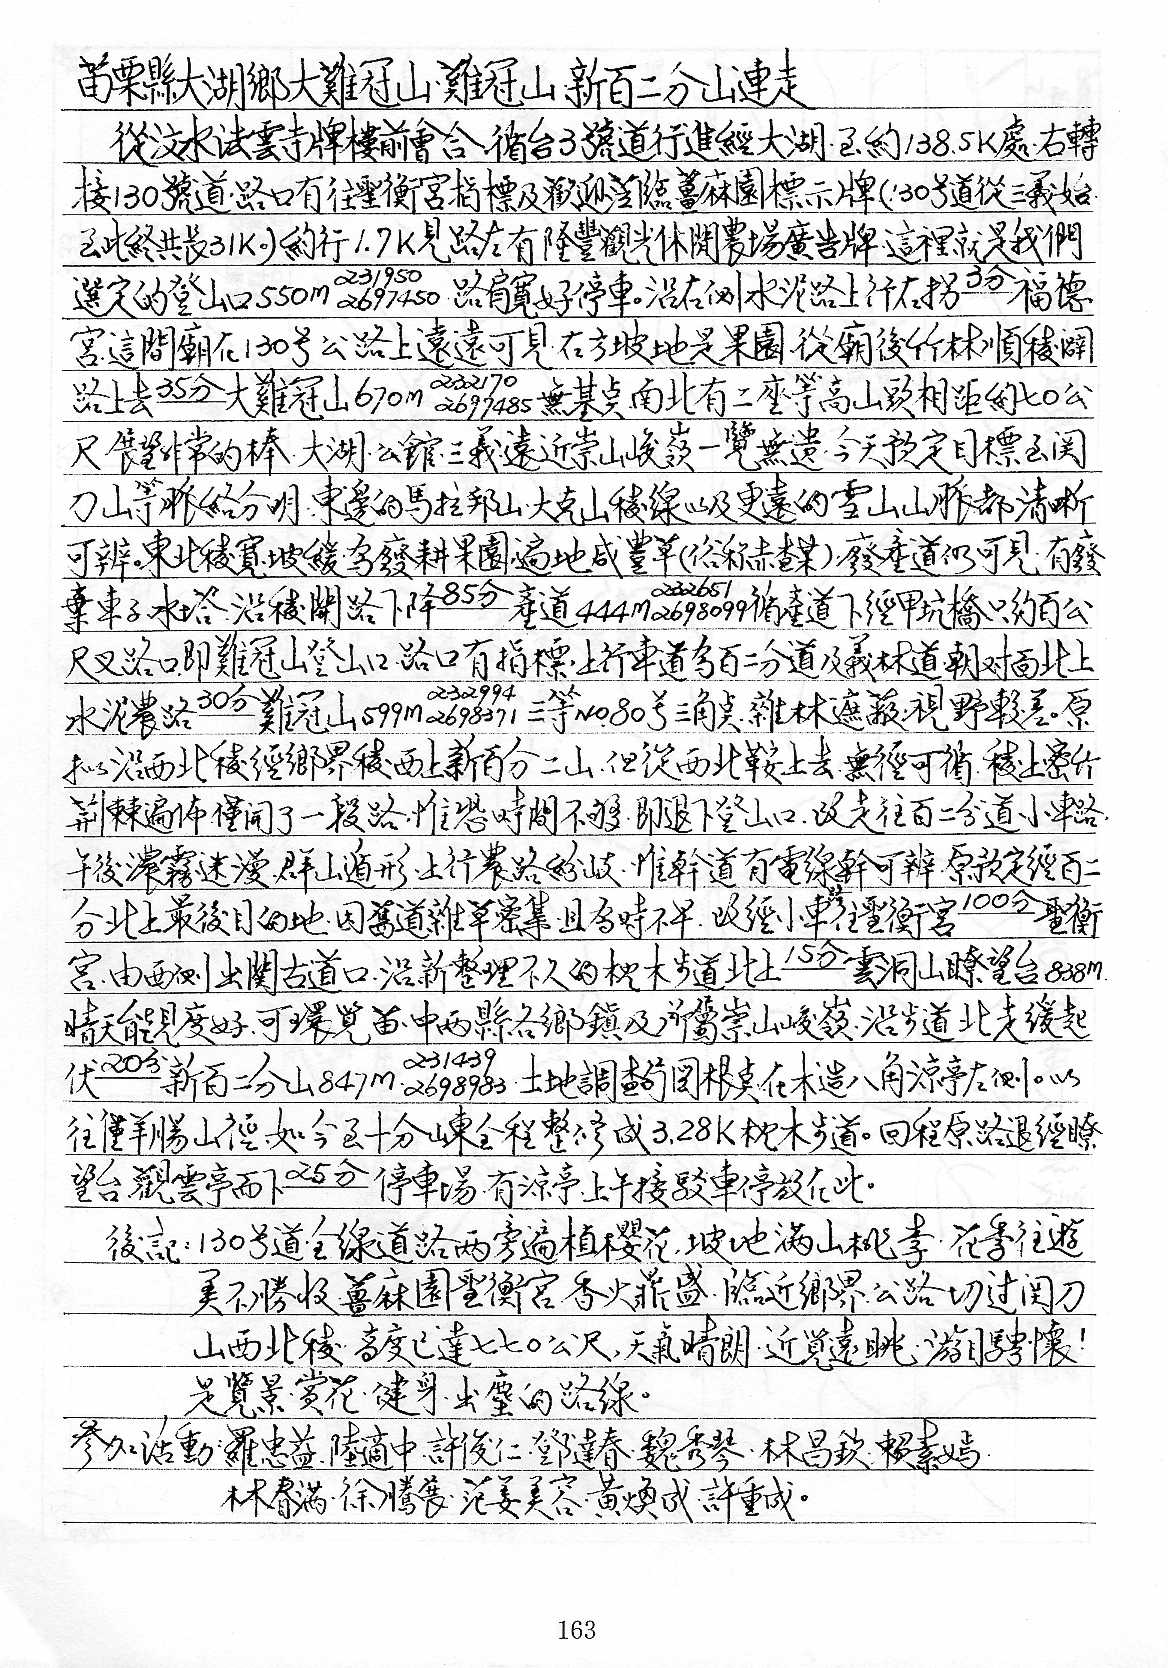 苗栗縣大湖鄉大雞冠山.雞冠山.新百二分山連走
從汶水法雲寺牌樓前會合.循台3號道行進經大湖.至約138.5K處.右轉
接130號道.路口有往聖衡宮指標及歡迎蒞臨薑麻園標示牌(130号道從三義始.
至此終共長31K。)約行1.7K見路左有隆豐觀光休閒農場廣告牌.這裡就是我們
選定的登山口550m 231950 2697450 路肩寬好停車。沿右側水泥路上行右拐 3分 福德
宮.這間廟在130号公路上遠遠可見.右方坡地是果園.從廟後竹林順稜闢
路上去 35分 大雞冠山670m 232170 2697485 無基點.南北有二座等高山頭相距約七0公
尺.展望非常的棒.大湖.公館.三義.遠近崇山峻嶺一覽無遺.今天預定目標至関
刀山等脈絡分明.東邊的馬拉邦山.大克山稜線以及更遠的雪山山脈都清晰
可辨。東北稜寬坡緩為廢耕果園.遍地咸豐草(俗称赤查某).廢產道仍可見.有廢
棄車子.水塔.沿稜開路下降 85分 產道444m 232651 2698099 循產道下經甲坑橋.只約百公
尺叉路口即雞冠山登山口.路口有指標.上行車道為百二分道及義林道.朝对面北上
水泥農路 30分 雞冠山599m 232994 2698371 三等NO80号三角点.雜林遮蔽.視野較差。原
拟沿西北稜經鄉界稜.西上新百分二山.但從西北鞍上去.無徑可循.稜上密竹
荊棘遍佈僅開了一段路.惟恐時間不够.即退下登山口.改走往百二分道小車路.
午後濃霧迷漫.群山遁形.上行農路紛歧.惟幹道有電線幹可辨.原預定經百二
分北上最後目的地.因舊道雜草密集.且為時不早.改經小車路往聖衡宮 100分 聖衡
宮.由西側出関古道口.沿新整理不久的枕木步道北上 15分 雲洞山瞭望台838m.
晴天能見度好.可環覽苗.中两縣各鄉鎮及所屬崇山峻嶺.沿步道北走緩起
伏 20分 新百二分山847m.231439 2698983.土地調查局図根點在木造八角涼亭左側。以
往僅羊腸山徑.如今至十分崠全程整修成3.28K枕木步道。回程原路退經瞭
望台.觀雲亭而下 25分 停車場.有涼亭.上午接駁車停放在此。
後記:130号道全線道路两旁遍植櫻花.坡地滿山桃李.花季往遊
美不勝收.薑麻園聖衡宮.香火鼎盛.臨近鄉界.公路切过関刀
山西北稜.高度已達七七0公尺,天氣晴朗.近覽遠眺.游目騁懷!
是覽景.賞花.健身.出塵的路線。
參加活動:羅忠益.陸適中.許俊仁.鄧達春.魏秀琴.林昌欽.賴素嫣.
林春滿.徐騰展.范姜美容.黃煥成.許重成。
163